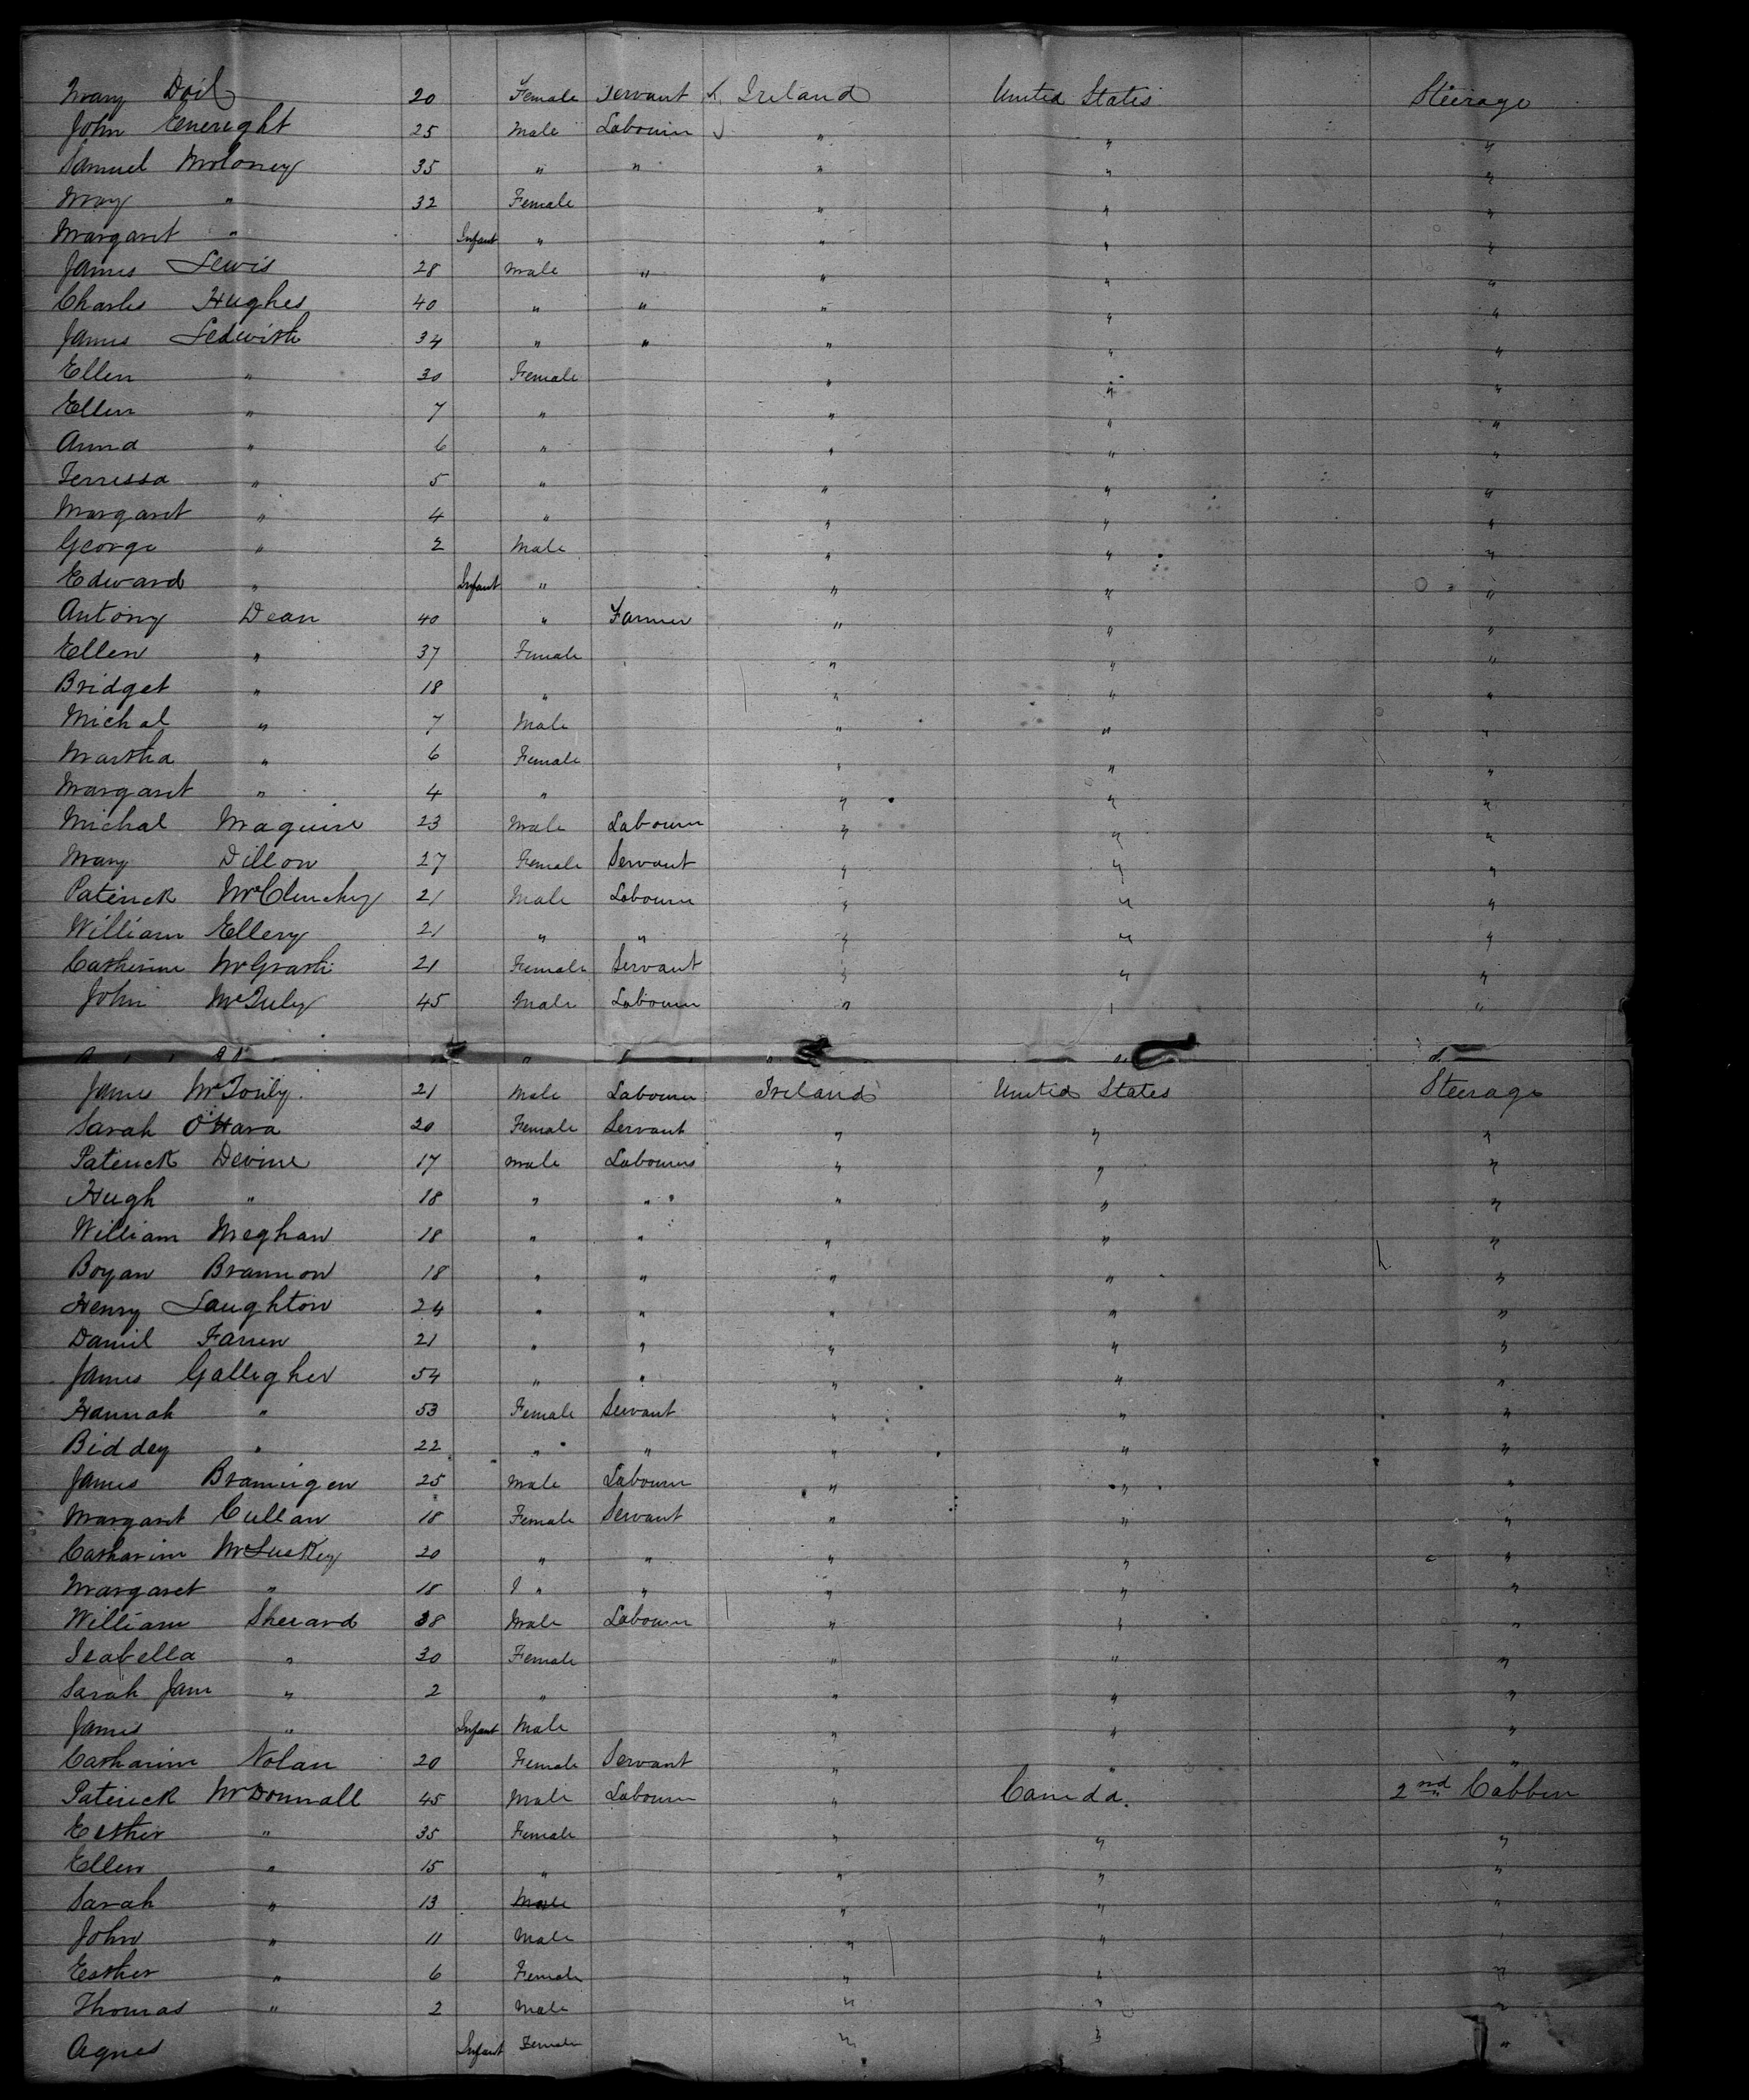 Mary Doil 20 Female Servant Ireland United States Steerage
John Eneright 25 Male Labourer " " "
Samuel Moloney 35 " " " " "
Mary " 32 Female " " "
Margaret " Infant " " " "
James Lewis 28 Male " " " "
Charles Hughes 40 " " " " "
James Ledwith 34 " " " " "
Ellen " 30 Female " " "
Ellen " 7 " " " "
Anna " 6 " " " "
Terressa " 5 " " " "
Margaret " 4 " " " "
George " 2 Male " " "
Edward " Infant " " " "
Antony Dean 40 " Farmer " " "
Ellen " 37 Female " " "
Bridget " 18 " " " "
Michal " 7 Male " " "
Martha " 6 Female " " "
Margaret " 4 " " " "
Michal Maguire 23 Male Labourer " " "
Mary Dillon 27 Female Servant " " "
Paterick McClenchy 21 Male Labourer " " "
William Ellery 21 " " " " "
Catherine McGrath 21 Female Servant " " "
John McTuly 45 Male Labourer " " "
James McTouly 21 Male Labourer Ireland United States Steerage
Sarah O'Hara 20 Female Servant " " "
Paterick Devine 17 Male Labourers " " "
Hugh " 18 " " " " "
William Meghan 18 " " " " "
Boyan Brannon 18 " " " " "
Henry Laughton 24 " " " " "
Daniel Farren 21 " " " " "
James Gallegher 54 " " " " "
Hannah " 53 Female Servant " " "
Biddey " 22 " " " " "
James Brannigen 25 Male Labourer " " "
Margaret Cullan 18 Female Servant " " "
Catharine McLuskey 20 " " " " "
Margaret " 18 " " " " "
William Sherard 38 Male Labourer " " "
Isabella " 30 Female " " "
Sarah Jane " 2 " " " "
James " Infant Male " " "
Catharine Nolan 20 Female Servant " " "
Paterick McDonnall 45 Male Labourer " Canada. 2nd Cabbin
Esther " 35 Female " " "
Ellen " 15 " " " "
Sarah " 13 Male " " "
John " 11 Male " " "
Esther " 6 Female " " "
Thomas " 2 Male " " "
Agnes Infant Female " " "